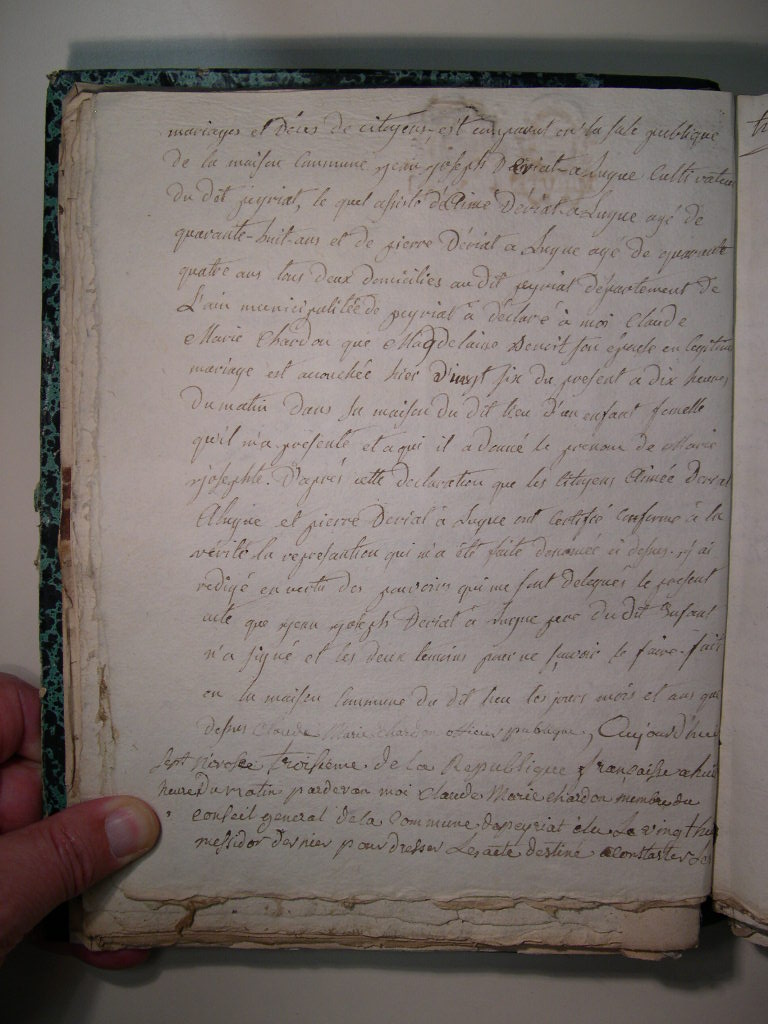 mariages et Décès de citoyens, est comparut en la sale publique
de la maison Commune jean joseph Deriat-a-Luque Cultivateur
du dit peyriat, le quel assisté d'Aimé Dériat a Luque agé de
quarante-huit-ans et de pierre Dériat a Luque agé de quarante
quatre ans tous deux domicilies audit peyriat département de
L'ain municipalité de peyriat a déclaré à moi Claude
Marie Chardon que Magdelaine Benoit son épouse en legitime
mariage est acouchée hier vingt six du présent a dix heures
du matin dans sa maison du dit lieu d'un enfant femelle
qu'il m'a présenté et a qui il a donné le prénom de Marie
josephte. D'après cette déclaration que les Citoyens Aimée Deriat
Aluque et pierre Deriat à Luque ont certifié conforme à la
vérité la represantion qui m'a été faite denomée ci dessus. j'ai
redigé en vertu des pouvoirs qui me sont delegués le présent
acte que jean joseph Deriat a Luque pere du dit Enfant
n'a signé et les deux temoins pour ne sçavoir le faire. fait
en la maison Commune du dit lieu les jours mois et ans que
dessus Claude Marie chardon officier publique, Aujourd'hui
sept nivose troisieme de la Republique française a huit
heure Du matin pardevan moi Claude Marie chardon membre du
conseil general de la Commune de peyriat élu Le vingt huit
messidor dernier pour dresser Les acte destiné a Constaster Les